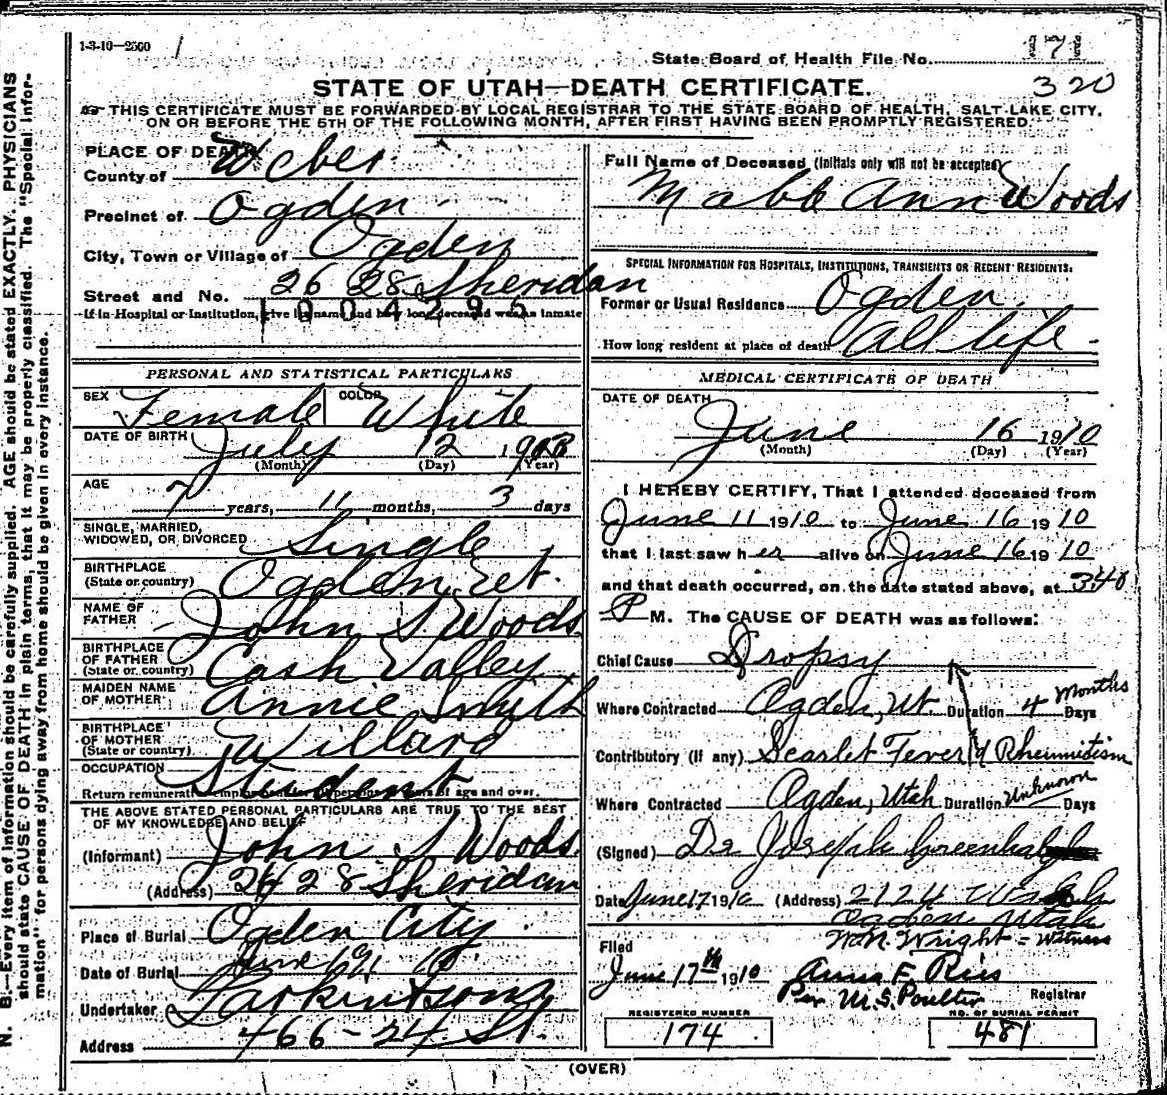 1-3-10—2500
State Board of Health File No. 171
320
STATE OF UTAH—DEATH CERTIFICATE.
THIS CERTIFICATE MUST BE FORWARDED BY LOCAL REGISTRAR TO THE STATE BOARD OF HEALTH, SALT LAKE CITY,
ON OR BEFORE THE 5TH OF THE FOLLOWING MONTH, AFTER FIRST HAVING BEEN PROMPTLY REGISTERED.
PLACE OF DEATH
County of Weber
Precinct of Ogden
City, Town or Village of Ogden
Street and No. 2628 Sheridan
1904295
If in Hospital or Institution, give its name and how long deceased was an inmate
PERSONAL AND STATISTICAL PARTICULARS
SEX Female COLOR White
DATE OF BIRTH July 12 190
(Month) (Day) (Year)
AGE
7 years, 11 months, 3 days
SINGLE, MARRIED,
WIDOWED, OR DIVORCED Single
BIRTHPLACE
(State or country) Ogden Ut.
NAME OF
FATHER John S Woods
BIRTHPLACE
OF FATHER
(State or country) Cash Valley
MAIDEN NAME
OF MOTHER Annie Smith
BIRTHPLACE
OF MOTHER
(State or country) Willard
OCCUPATION Student
THE ABOVE STATED PERSONAL PARTICULARS ARE TRUE TO THE BEST
OF MY KNOWLEDGE AND BELIEF
(Informant) John S Woods
(Address) 2628 Sheridan
Place of Burial Ogden City
Date of Burial June 19 1910
Undertaker Larkin & Sons
Address 466-24 St.
Full Name of Deceased (Initials only will not be accepted)
Ann Woods
SPECIAL INFORMATION FOR HOSPITALS, INSTITUTIONS, TRANSIENTS OR RECENT RESIDENTS.
Former or Usual Residence Ogden
How long resident at place of death All life
MEDICAL CERTIFICATE OF DEATH
DATE OF DEATH
June 16 1910
(Month) (Day) (Year)
I HEREBY CERTIFY, That I attended deceased from
June 11 1910 to June 16 1910
that I last saw her alive on June 16 1910
and that death occurred, on the date stated above, at 340
P M. The CAUSE OF DEATH was as follows:
Chief Cause Dropsy
Where Contracted Ogden, Ut. Duration 4 Months Days
Contributory (if any) Scarlet Fever & Rheumitism
Where Contracted Ogden, Utah Duration Unknown Days
(Signed) Dr Joseph Greenhalgh
Date June 17 1910 (Address) 2124 Wash
Ogden Utah
Wm. Wright = Witness
Filed
June 17th 1910 Anna F. Ries
Per M. S. Poulter Registrar
REGISTERED NUMBER
174
NO. OF BURIAL PERMIT
481
(OVER)
N. B.—Every item of information should be carefully supplied. AGE should be stated EXACTLY. PHYSICIANS
should state CAUSE OF DEATH in plain terms, that it may be properly classified. The "Special Infor-
mation" for persons dying away from home should be given in every instance.